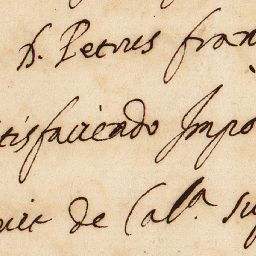 h. Petrus fran
tisfaciendo Impo
de Cala. sup